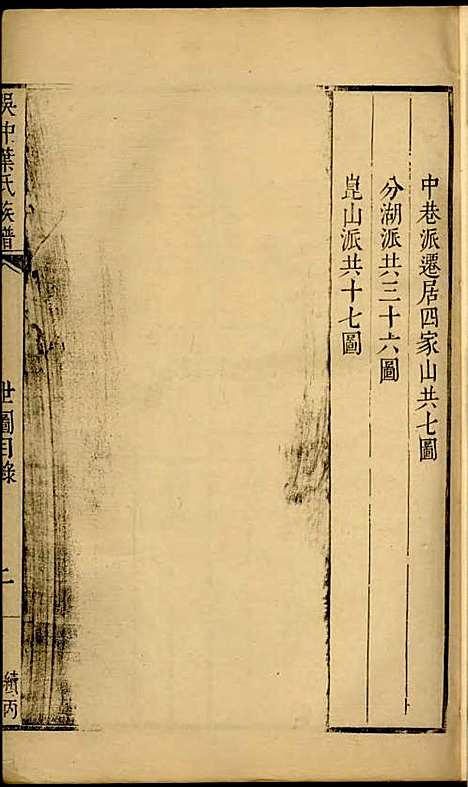 中巷派遷居四家山共七圖
分湖派共三十六圖
崑山派共十七圖
吳中葉氏族譜
世圖目錄
二
續丙